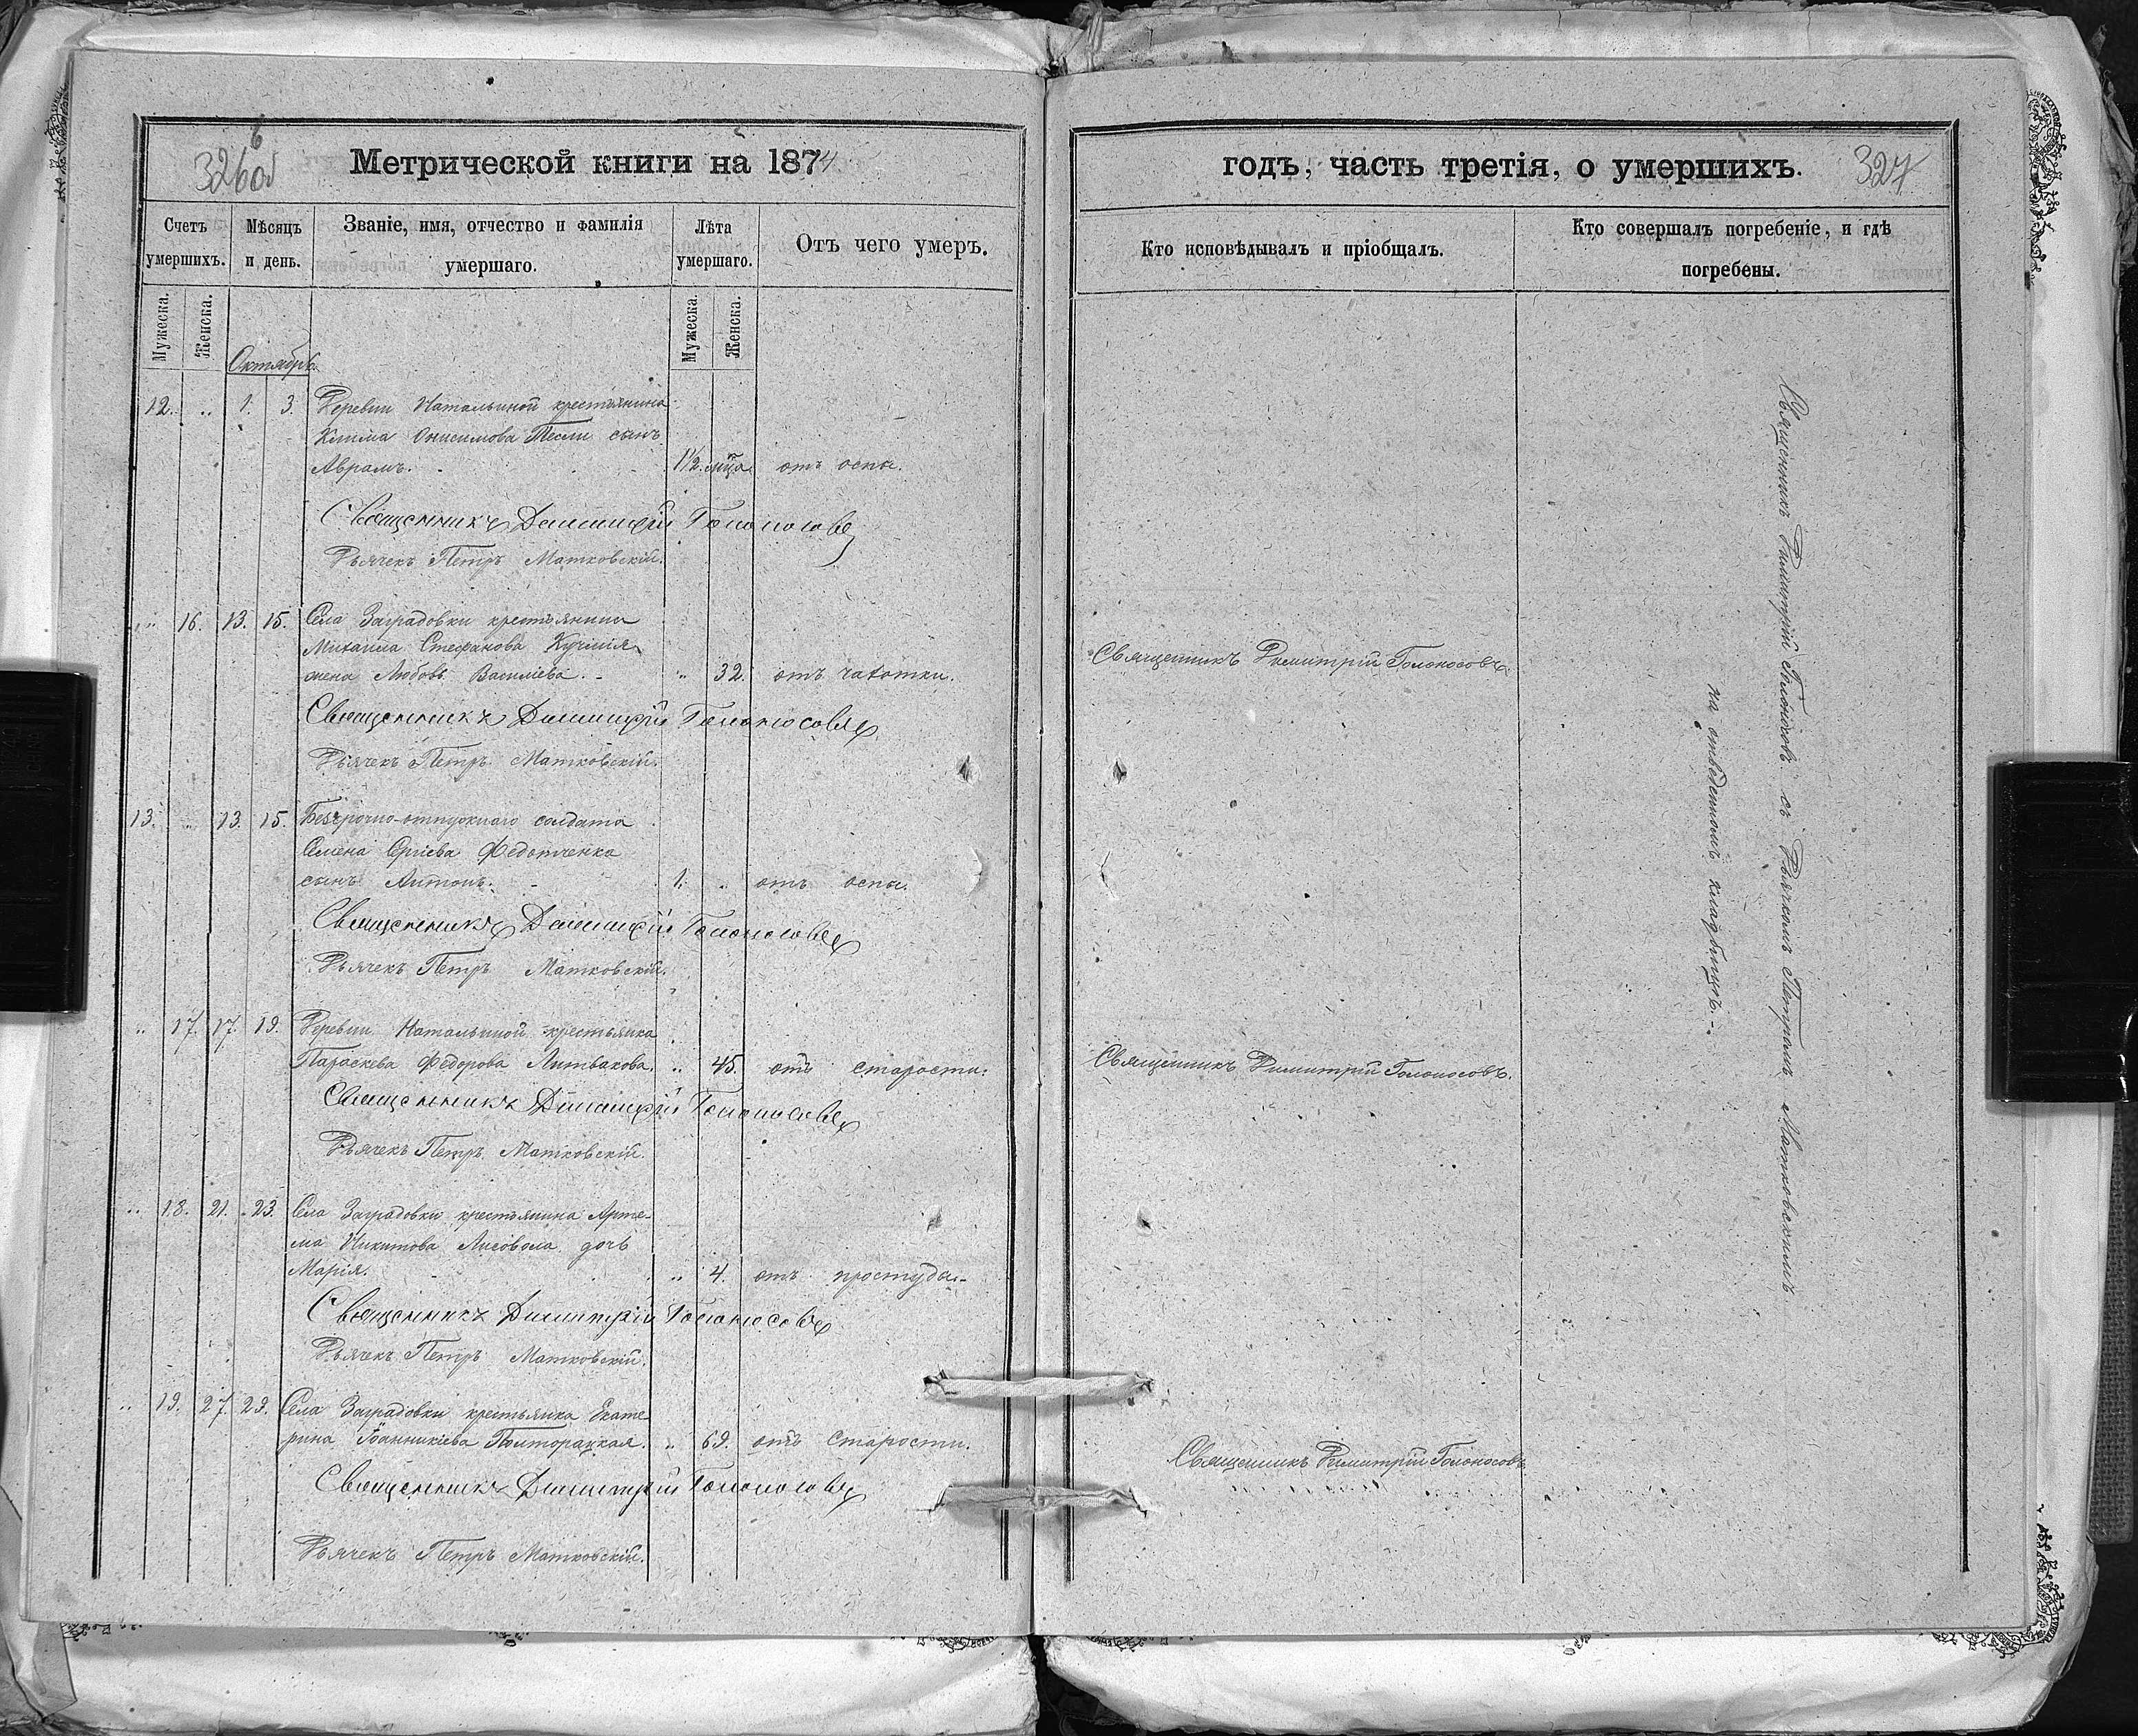 326об
6
Метрической книги на 1874
Счетъ умершихъ.
Мѣсяцъ и день.
Званіе, имя, отчество и фамилія умершаго.
Лѣта умершаго.
Отъ чего умеръ.
Мужеска.
Женска.
Мужеска.
Женска.
Октябрь.
12. „ 1. 3. Деревни Натальиной крестьянина
Клима Онисимова Тесли сынъ
Аврамъ. - 1½ мца отъ оспы.
Священникъ Димитрій Голоносовъ
Дьячекъ Петръ Матковскій.
„ 16. 13. 15. Села Заградовки крестьянина
Михаила Стефанова Кучмія
жена Любовь Василіева. - „ 32. отъ чахотки.
Священникъ Димитрій Голоносовъ
Дьячекъ Петръ Матковскій.
13. „ 13. 15. Безсрочно-отпускнаго солдата
Семена Сргіева Федотченка
сынъ Антонъ. - 1. „ отъ оспы.
Священникъ Димитрій Голоносовъ
Дьячекъ Петръ Матковскій.
„ 17. 17. 19. Деревни Натальиной крестьянка
Параскева Федорова Литвакова. „ 45. отъ старости.
Священникъ Димитрій Голоносовъ
Дьячекъ Петръ Матковскій.
„ 18. 21. 23. Села Заградовки крестьянина Арте-
ма Никитова Лисовола дочь
Марія. „ 4. отъ простуды. -
Священникъ Димитрій Голоносовъ
Дьячекъ Петръ Матковскій.
„ 19. 27. 29. Села Заградовки крестьянка Екате-
рина Іоанникіева Полторацкая. „ 69. отъ старости.
Священникъ Димитрій Голоносовъ
Дьячекъ Петръ Матковскій.
годъ, часть третія, о умершихъ.
327
Кто исповѣдывалъ и пріобщалъ.
Кто совершалъ погребеніе, и гдѣ
погребены.
Священникъ Димитрій Голоносовъ.
Священникъ Димитрій Голоносовъ.
Священникъ Димитрій Голоносовъ
Священникъ Димитрій Голоносовъ съ Дьячкомъ Петромъ Матковскимъ
на отведенномъ кладбищѣ. -